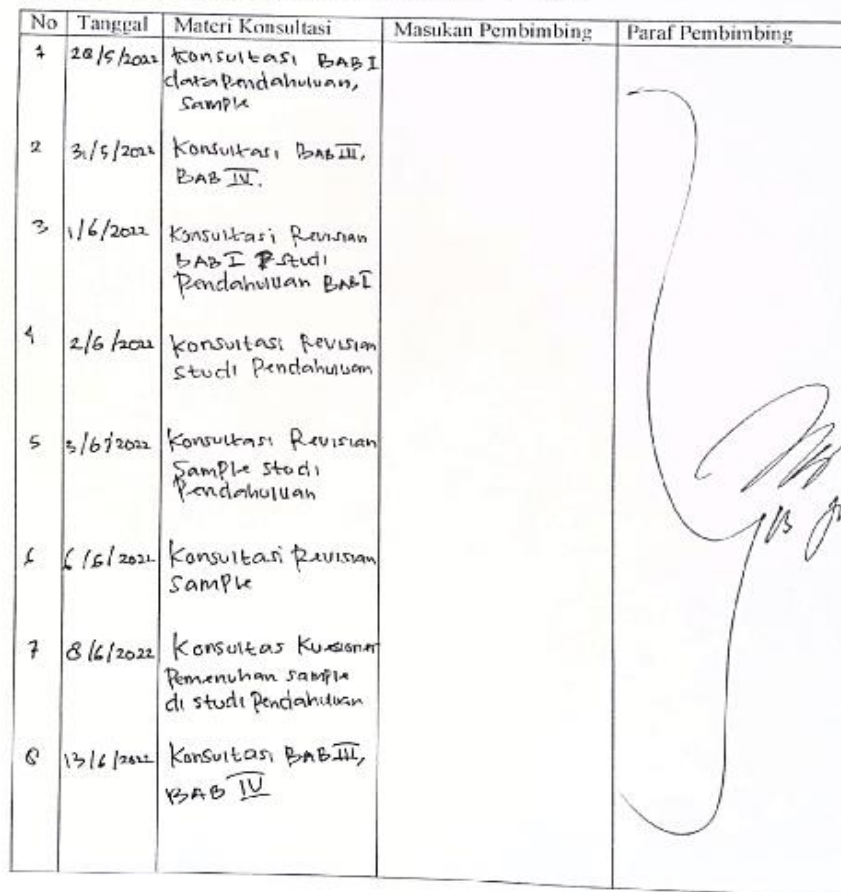 No Tanggal Materi Konsultasi Masukan Pembimbing Paraf Pembimbing
1 28/5/2022 Konsultasi BAB I
data Pendahuluan,
Sample
2 31/5/2022 Konsultasi BAB III,
BAB IV.
3 1/6/2022 Konsultasi Revisian
BAB I Studi
Pendahuluan BAB I
4 2/6/2022 Konsultasi Revisian
studi Pendahuluan
5 3/6/2022 Konsultasi Revisian
Sample studi
Pendahuluan
6 6/6/2022 Konsultasi Revisian
Sample
7 8/6/2022 Konsultas Kuesioner
Pemenuhan sample
di studi Pendahuluan
8 13/6/2022 Konsultasi BAB III,
BAB IV